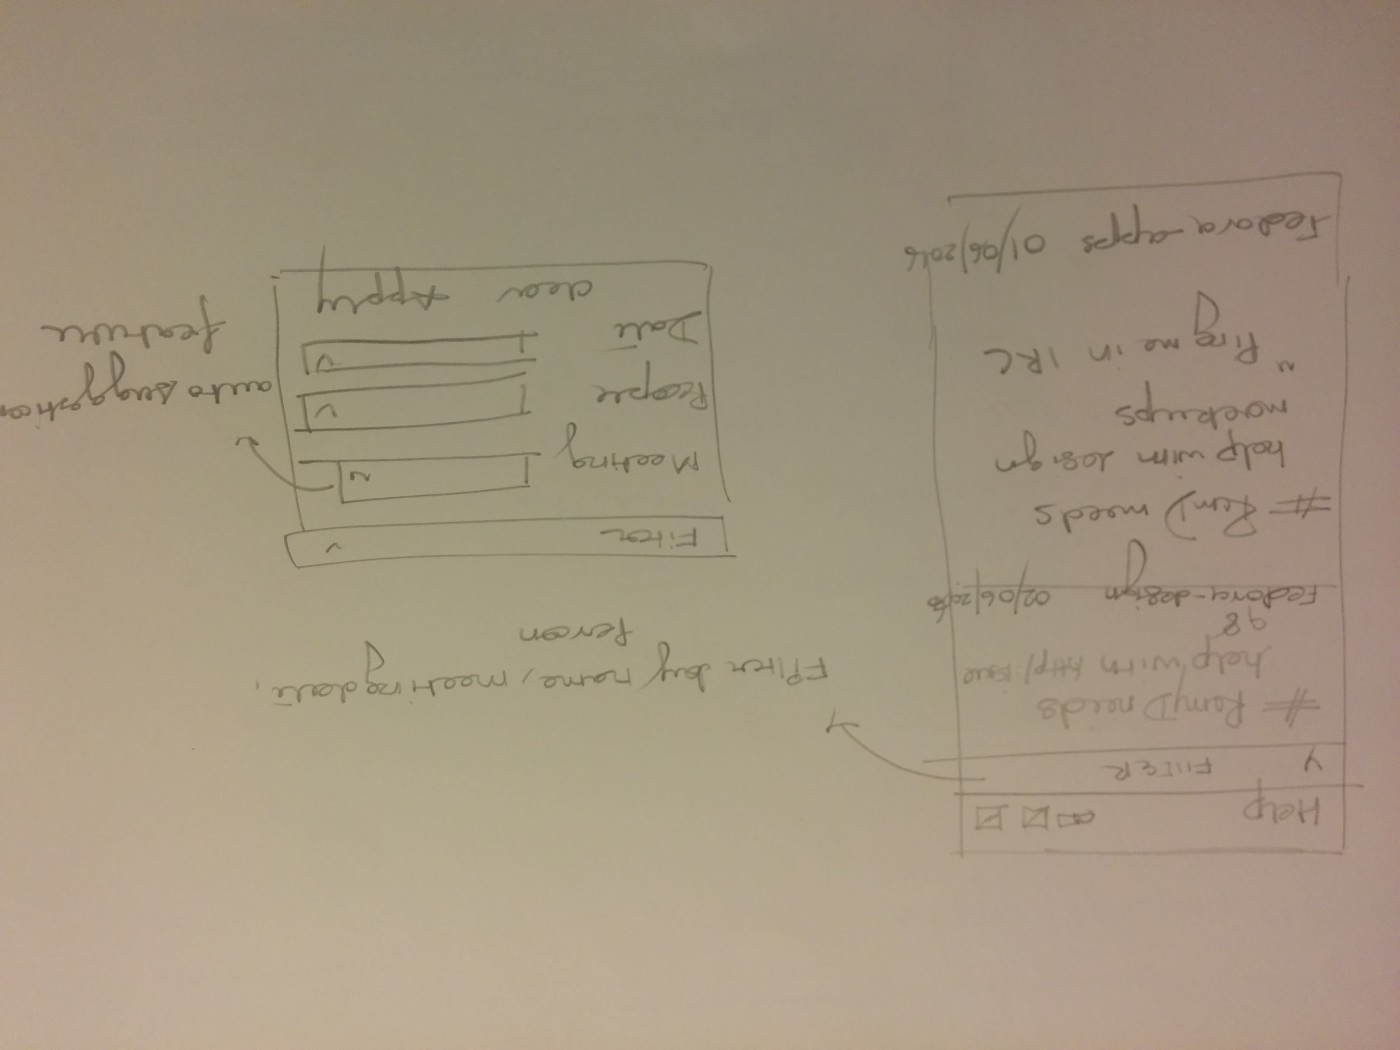 Help
FILTER
# RemyD needs
help with http/ issue
98
Fedora-design 02/06/2016
# RemyD needs
help with design
mockups
" Ping me in IRC
Fedora-apps 01/06/2016
Filter by name, meeting date,
Person
Filter
Meeting
People
Date
clear Apply
auto suggestion
feature